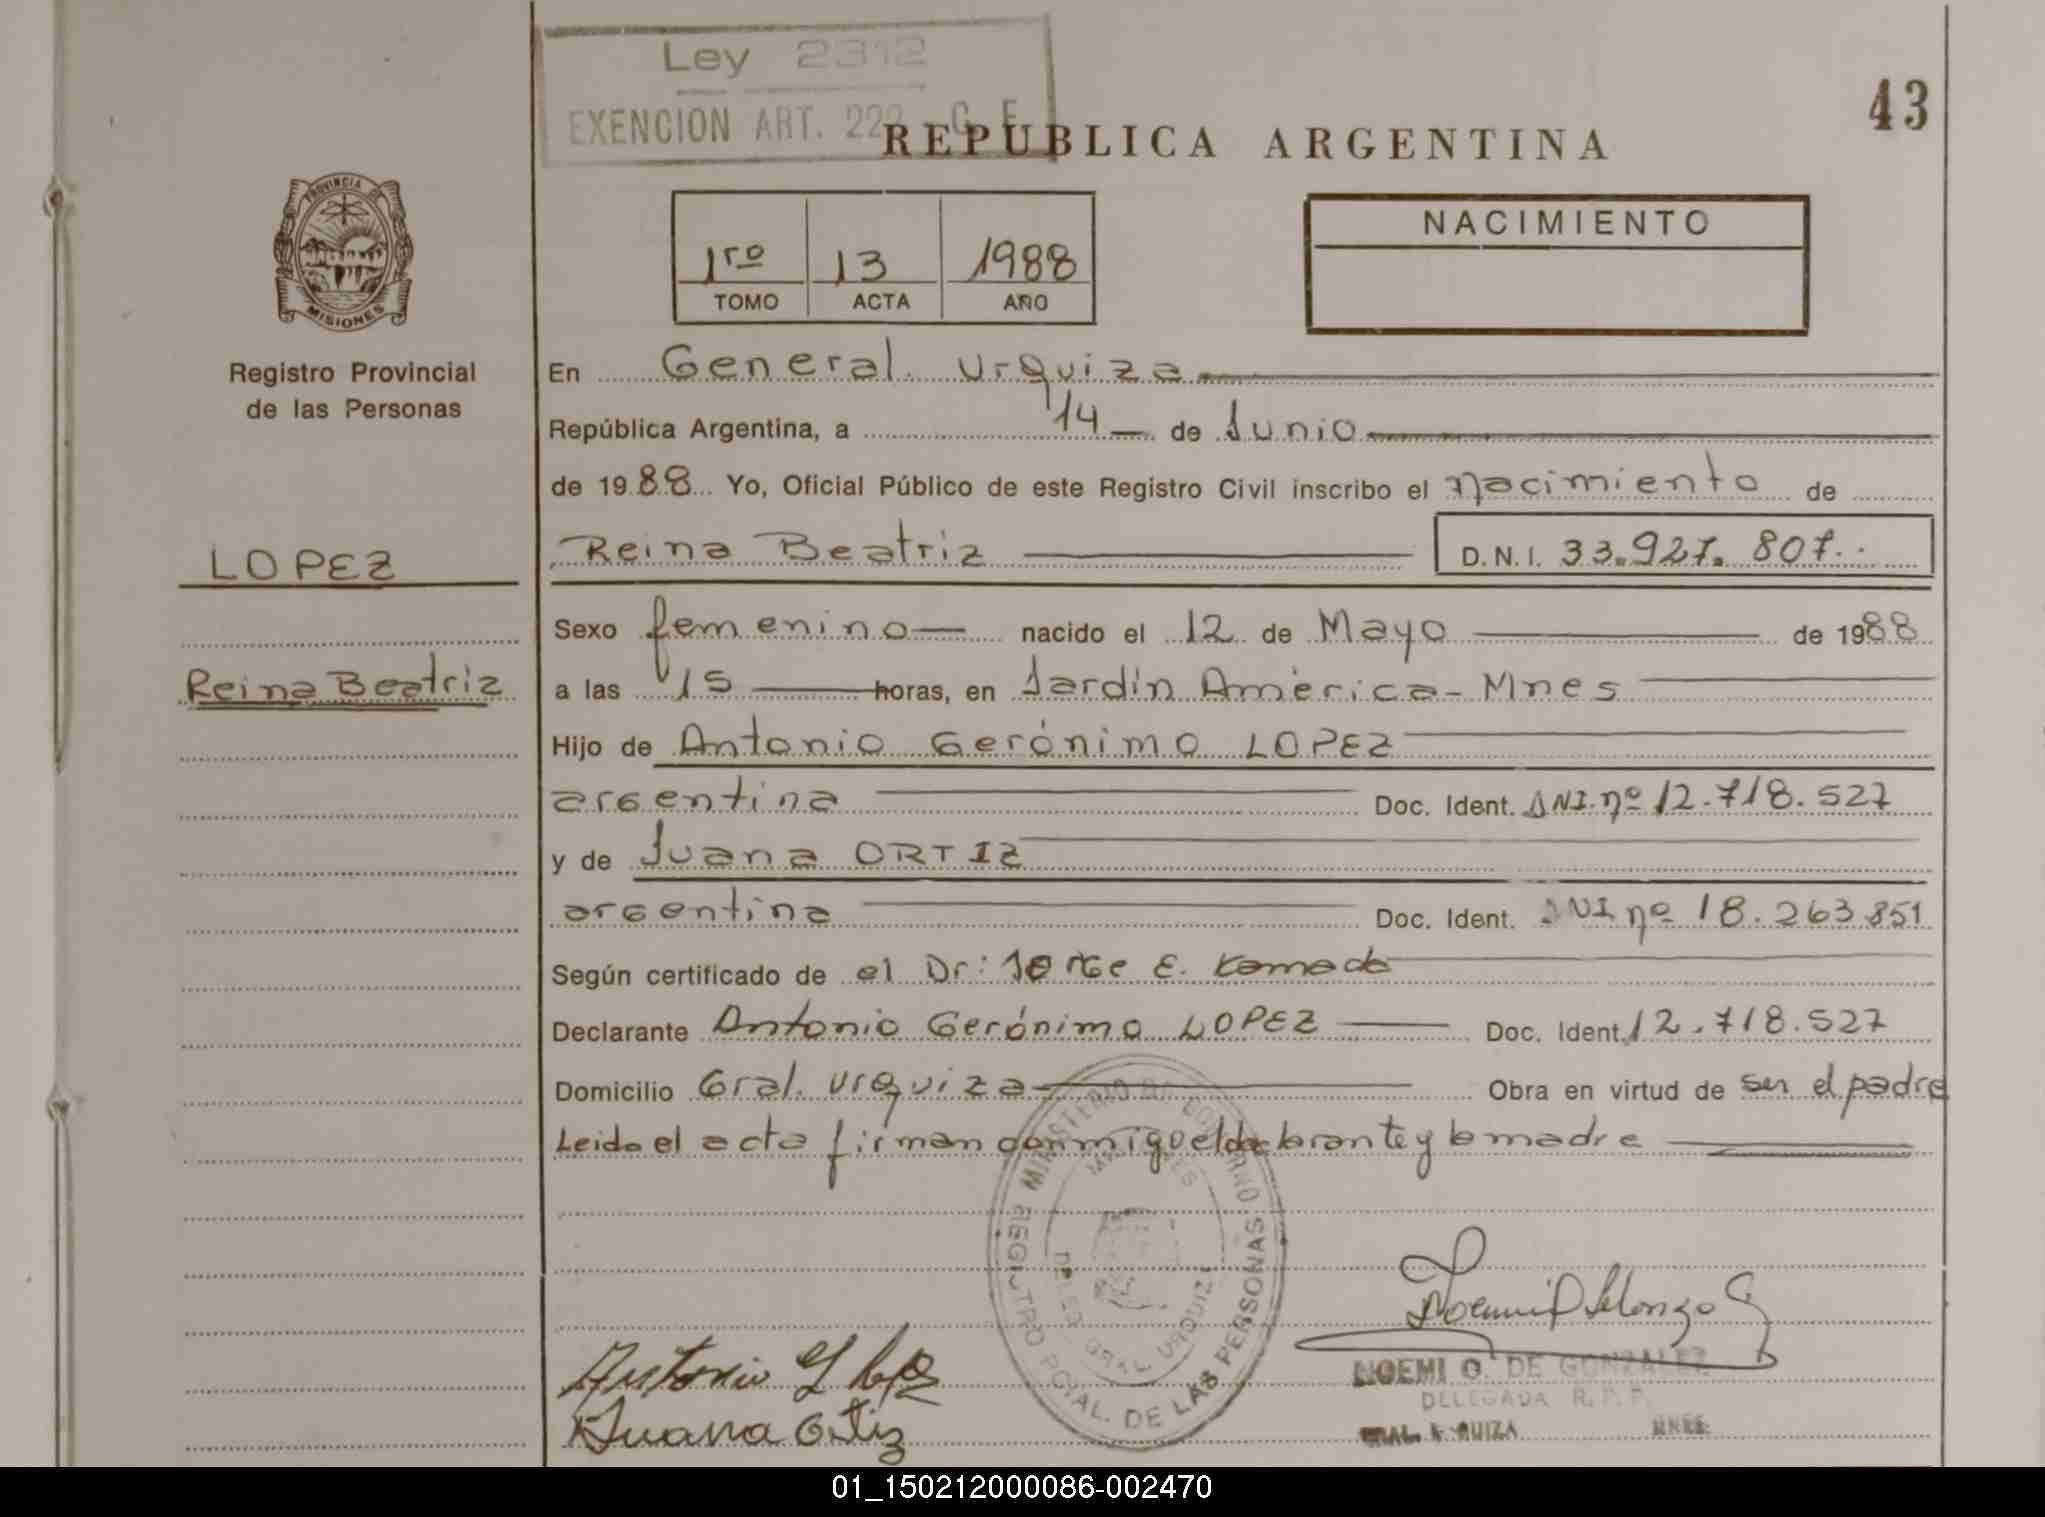 Ley 2312
EXENCION ART. 222 C. F.
43
REPUBLICA ARGENTINA
PROVINCIA DE
MISIONES
Registro Provincial
de las Personas
1ro 13 1988
TOMO ACTA AÑO
NACIMIENTO
En General Urquiza
República Argentina, a 14 de Junio
de 1988 Yo, Oficial Público de este Registro Civil inscribo el nacimiento de
LOPEZ
Reina Beatriz D.N.I. 33.927.807
Sexo femenino nacido el 12 de Mayo de 1988
Reina Beatriz
a las 15 horas, en Jardín América - Mnes
Hijo de Antonio Gerónimo LOPEZ
argentina Doc. Ident. DNI. nº 12.718.527
y de Juana ORTIZ
argentina Doc. Ident. DNI nº 18.263.851
Según certificado de el Dr: Jorge E. Kamada
Declarante Antonio Gerónimo LOPEZ Doc. Ident. 12.718.527
Domicilio Gral. Urquiza Obra en virtud de ser el padre
Leida el acta firman conmigo el declarante y la madre
MINISTERIO DE GOBIERNO
REGISTRO PCIAL. DE LAS PERSONAS
MISIONES
DELEG. GRAL. URQUIZA
Antonio G Lopez
Juana Ortiz
NOEMI O. DE GONZALEZ
DELEGADA R.P.P.
GRAL. URQUIZA MNES.
01_150212000086-002470